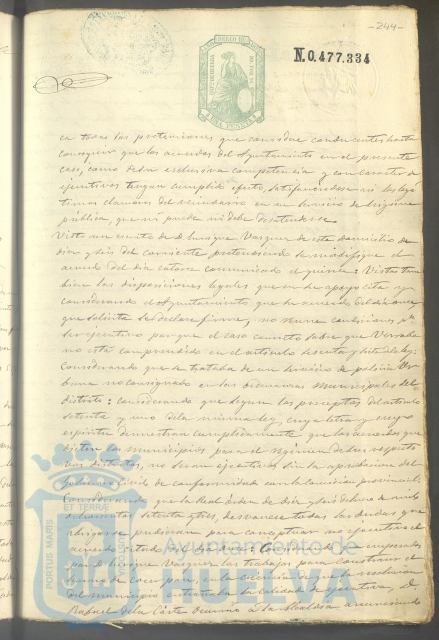 -244-
SELLO 11º
UNA PESETA
N.0.477.334
en todas las pretensiones que considere conducentes hasta
conseguir que los acuerdos del Ayuntamiento en el presente
caso, como de su exclusiva competencia y con caracter de
ejecutivos tengan cumplido efecto, satisfaciendose asi los legi
timos clamores del vecindario en un servicio de higiene
pública, que ni puede ni debe desatenderse.
Visto un escrito de D. Enrique Vazquez de este domicilio de
diez y seis del corriente pretendiendo se modifique el
acuerdo del dia catorce comunicado el quince: Vistas tam
bien las disposiciones legales que en su apoyo cita y
considerando el Ayuntamiento que su acuerdo
que solicita se declare firme, no reune condiciones
ser ejecutivo porque el caso concreto sobre que versaba
no está comprendido en el articulo sesenta y siete de la ley:
Considerando que se trataba de un servicio de policia Ur
bana no consignado en las Ordenanzas Municipales del
distrito: considerando que segun los preceptos del articulo
setenta y uno de la misma ley, cuya letra y cuyo
espiritu demuestran cumplidamente que los acuerdos que
dicten los municipios para el régimen de sus respecti
vos distritos, no seran ejecutivos sin la aprobacion del
Gobierno Civil de conformidad con la Comision provincial:
Considerando que la Real órden de diez y seis de
ochocientos setenta y tres, desvanece todas las dudas que
abrigarse pudieran para conceptuar no ejecutivo el
acuerdo
por D. Enrique Vazquez los trabajos para construir el
en la creencia de que la resolucion
del municipio entrañaba la calidad de ejecutiva, D.
Rafael de la Corte ocurrió á la Alcaldia anunciando
PORTUS MARIS ET TERRAE CUSTODIA
Ayuntamiento de
HUELVA